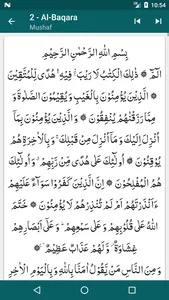 10:54
2 - Al-Baqara
Mushaf
بِسْمِ اللهِ الرَّحْمٰنِ الرَّحِيْمِ
الٓمّٓ ۞ ذٰلِكَ الْكِتٰبُ لَا رَيْبَ ۛ فِيْهِ ۛ هُدًى لِّلْمُتَّقِيْنَ
۞ الَّذِيْنَ يُؤْمِنُوْنَ بِالْغَيْبِ وَيُقِيْمُوْنَ الصَّلٰوةَ وَ
مِمَّا رَزَقْنٰهُمْ يُنْفِقُوْنَ ۞ وَ الَّذِيْنَ يُؤْمِنُوْنَ بِمَآ
اُنْزِلَ اِلَيْكَ وَ مَآ اُنْزِلَ مِنْ قَبْلِكَ وَ بِالْاٰخِرَةِ هُمْ
يُوْقِنُوْنَ ۞ اُولٰٓئِكَ عَلٰى هُدًى مِّنْ رَّبِّهِمْ وَ اُولٰٓئِكَ
هُمُ الْمُفْلِحُوْنَ ۞ اِنَّ الَّذِيْنَ كَفَرُوْا سَوَآءٌ عَلَيْهِمْ
ءَاَنْذَرْتَهُمْ اَمْ لَمْ تُنْذِرْهُمْ لَا يُؤْمِنُوْنَ ۞ خَتَمَ
اللهُ عَلٰى قُلُوْبِهِمْ وَ عَلٰى سَمْعِهِمْ وَ عَلٰٓى اَبْصَارِهِمْ
غِشَاوَةٌ وَّ لَهُمْ عَذَابٌ عَظِيْمٌ ۞
وَ مِنَ النَّاسِ مَنْ يَّقُوْلُ اٰمَنَّا بِاللهِ وَ بِالْيَوْمِ الْاٰخِرِ